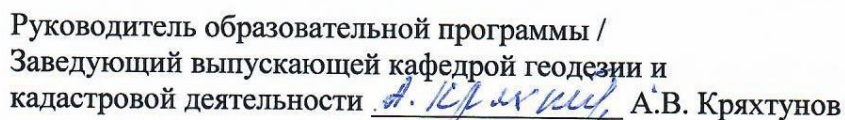 Руководитель образовательной программы /
Заведующий выпускающей кафедрой геодезии и
кадастровой деятельности А. Кряхтунов А.В. Кряхтунов